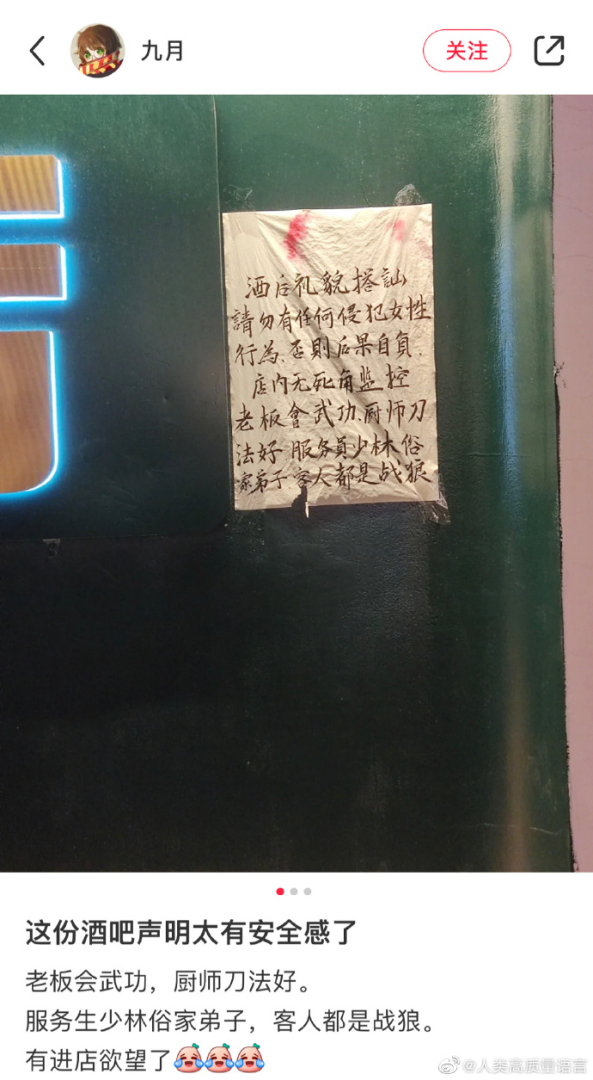 九月
关注
酒后礼貌搭訕
請勿有任何侵犯女性
行為、否則后果自負.
店内无死角监控
老板會武功.厨师刀
法好 服务員少林俗
家弟子 客人都是战狼
这份酒吧声明太有安全感了
老板会武功，厨师刀法好。
服务生少林俗家弟子，客人都是战狼。
有进店欲望了
@人类高质量语言